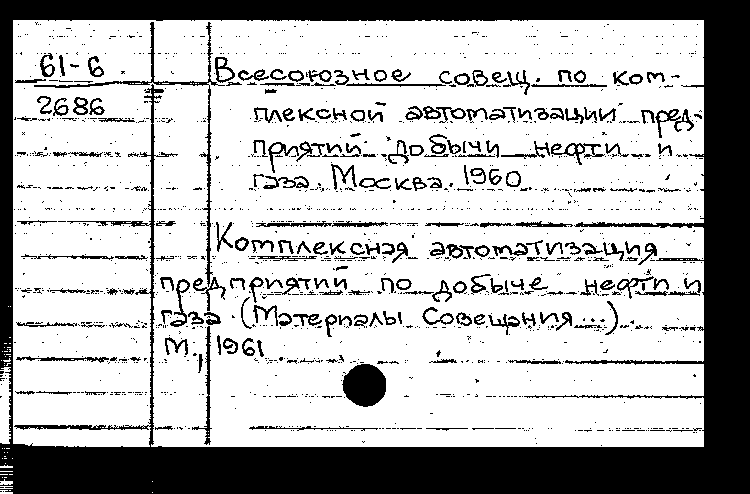 61-6
2686
Всесоюзное совещ. по ком-
плексной автоматизации пред-
приятий добычи нефти и
газа. Москва. 1960
Комплексная автоматизация
предприятий по добыче нефти и
газа. (Материалы Совещания...).
М., 1961